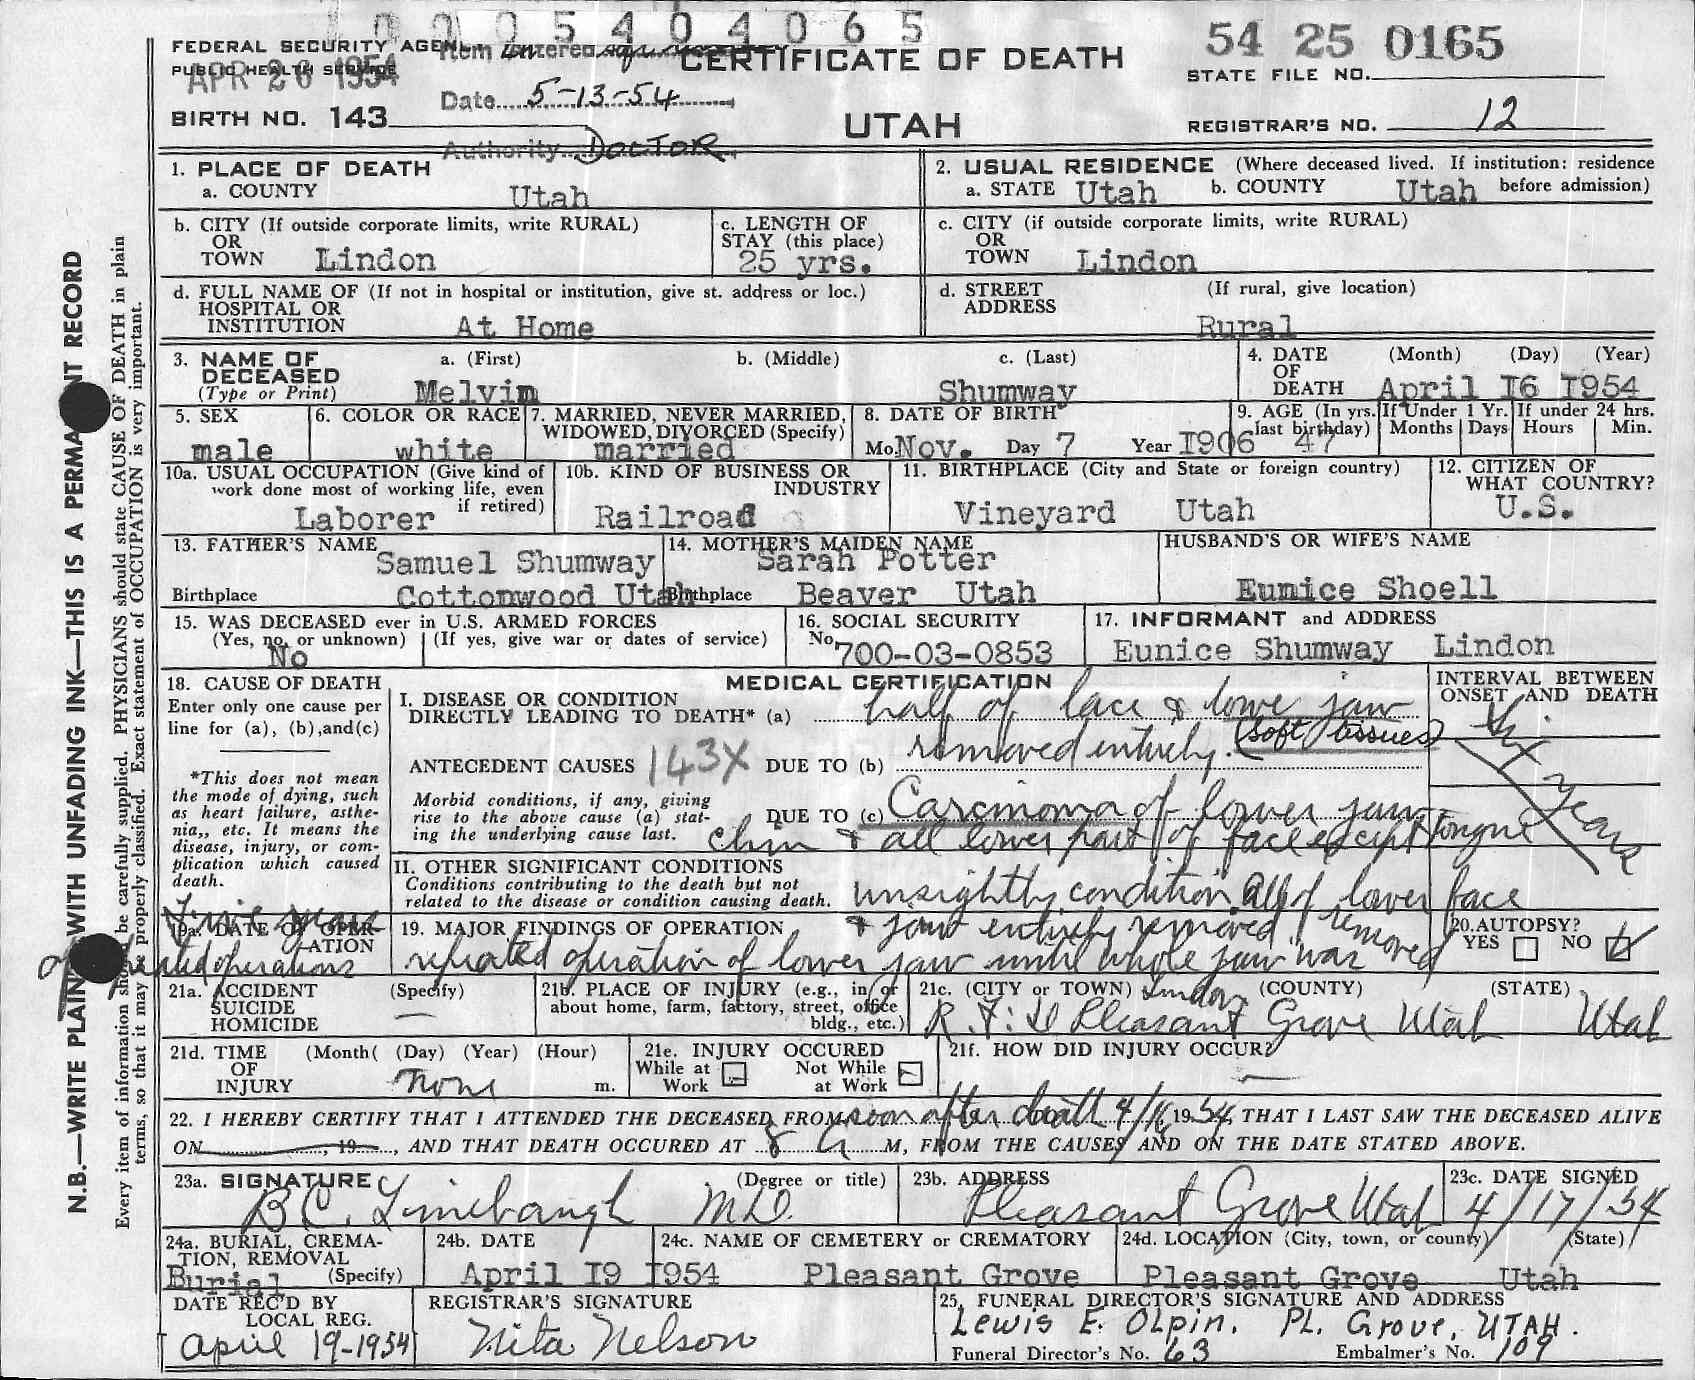 1005404065
54 25 0165
FEDERAL SECURITY AGENCY Item entered
CERTIFICATE OF DEATH
PUBLIC HEALTH SERVICE
APR 26 1954
STATE FILE NO.
Date 5-13-54
BIRTH NO. 143
UTAH
REGISTRAR'S NO. 12
Authority DOCTOR
1. PLACE OF DEATH
a. COUNTY Utah
2. USUAL RESIDENCE (Where deceased lived. If institution: residence before admission)
a. STATE Utah b. COUNTY Utah
b. CITY (If outside corporate limits, write RURAL)
OR
TOWN Lindon
c. LENGTH OF
STAY (this place)
25 yrs.
c. CITY (if outside corporate limits, write RURAL)
OR
TOWN Lindon
d. FULL NAME OF (If not in hospital or institution, give st. address or loc.)
HOSPITAL OR
INSTITUTION At Home
d. STREET (If rural, give location)
ADDRESS
Rural
3. NAME OF a. (First) b. (Middle) c. (Last)
DECEASED
(Type or Print) Melvin Shumway
4. DATE (Month) (Day) (Year)
OF
DEATH April I6 I954
5. SEX
male
6. COLOR OR RACE
white
7. MARRIED, NEVER MARRIED,
WIDOWED, DIVORCED (Specify)
married
8. DATE OF BIRTH
Mo. Nov. Day 7 Year I906
9. AGE (In yrs. last birthday) 47
If Under 1 Yr. Months Days
If under 24 hrs. Hours Min.
10a. USUAL OCCUPATION (Give kind of
work done most of working life, even
if retired)
Laborer
10b. KIND OF BUSINESS OR
INDUSTRY
Railroad
11. BIRTHPLACE (City and State or foreign country)
Vineyard Utah
12. CITIZEN OF
WHAT COUNTRY?
U.S.
13. FATHER'S NAME
Samuel Shumway
Birthplace Cottonwood Utah
14. MOTHER'S MAIDEN NAME
Sarah Potter
Birthplace Beaver Utah
HUSBAND'S OR WIFE'S NAME
Eunice Shoell
15. WAS DECEASED ever in U.S. ARMED FORCES
(Yes, no, or unknown) (If yes, give war or dates of service)
No
16. SOCIAL SECURITY
No. 700-03-0853
17. INFORMANT and ADDRESS
Eunice Shumway Lindon
18. CAUSE OF DEATH
Enter only one cause per
line for (a), (b), and (c)
*This does not mean
the mode of dying, such
as heart failure, asthe-
nia,, etc. It means the
disease, injury, or com-
plication which caused
death.
MEDICAL CERTIFICATION
I. DISEASE OR CONDITION
DIRECTLY LEADING TO DEATH* (a) half of face & lower jaw
removed entirely. (soft tissues)
ANTECEDENT CAUSES 143X DUE TO (b)
Morbid conditions, if any, giving
rise to the above cause (a) stat-
ing the underlying cause last.
DUE TO (c) Carcinoma of lower jaw,
chin & all lower part of face except tongue
INTERVAL BETWEEN
ONSET AND DEATH
Six years
II. OTHER SIGNIFICANT CONDITIONS
Conditions contributing to the death but not
related to the disease or condition causing death.
unsightly condition. All of lower face
& jaw entirely removed
19a. DATE OF OPER-
ATION
repeated operations
19. MAJOR FINDINGS OF OPERATION
repeated operation of lower jaw until whole jaw was removed
20. AUTOPSY?
YES NO
21a. ACCIDENT (Specify)
SUICIDE
HOMICIDE
21b. PLACE OF INJURY (e.g., in or
about home, farm, factory, street, office
bldg., etc.)
21c. (CITY or TOWN) (COUNTY) (STATE)
Lindon
R.F.D Pleasant Grove Utah Utah
21d. TIME (Month( (Day) (Year) (Hour)
OF
INJURY none m.
21e. INJURY OCCURED
While at Work Not While at Work
21f. HOW DID INJURY OCCUR?
22. I HEREBY CERTIFY THAT I ATTENDED THE DECEASED FROM soon after death 4/16 1954, THAT I LAST SAW THE DECEASED ALIVE
ON , 19 , AND THAT DEATH OCCURED AT 8 A M, FROM THE CAUSES AND ON THE DATE STATED ABOVE.
23a. SIGNATURE (Degree or title)
B C. Linebaugh M.D.
23b. ADDRESS
Pleasant Grove Utah
23c. DATE SIGNED
4/17/54
24a. BURIAL, CREMA-
TION, REMOVAL
(Specify)
Burial
24b. DATE
April I9 I954
24c. NAME OF CEMETERY or CREMATORY
Pleasant Grove
24d. LOCATION (City, town, or county) (State)
Pleasant Grove Utah
DATE REC'D BY
LOCAL REG.
April 19-1954
REGISTRAR'S SIGNATURE
Nita Nelson
25. FUNERAL DIRECTOR'S SIGNATURE AND ADDRESS
Lewis E. Olpin. PL. Grove, UTAH.
Funeral Director's No. 63 Embalmer's No. 109
N.B.—WRITE PLAINLY WITH UNFADING INK—THIS IS A PERMANENT RECORD
Every item of information should be carefully supplied. PHYSICIANS should state CAUSE OF DEATH in plain
terms, so that it may be properly classified. Exact statement of OCCUPATION is very important.